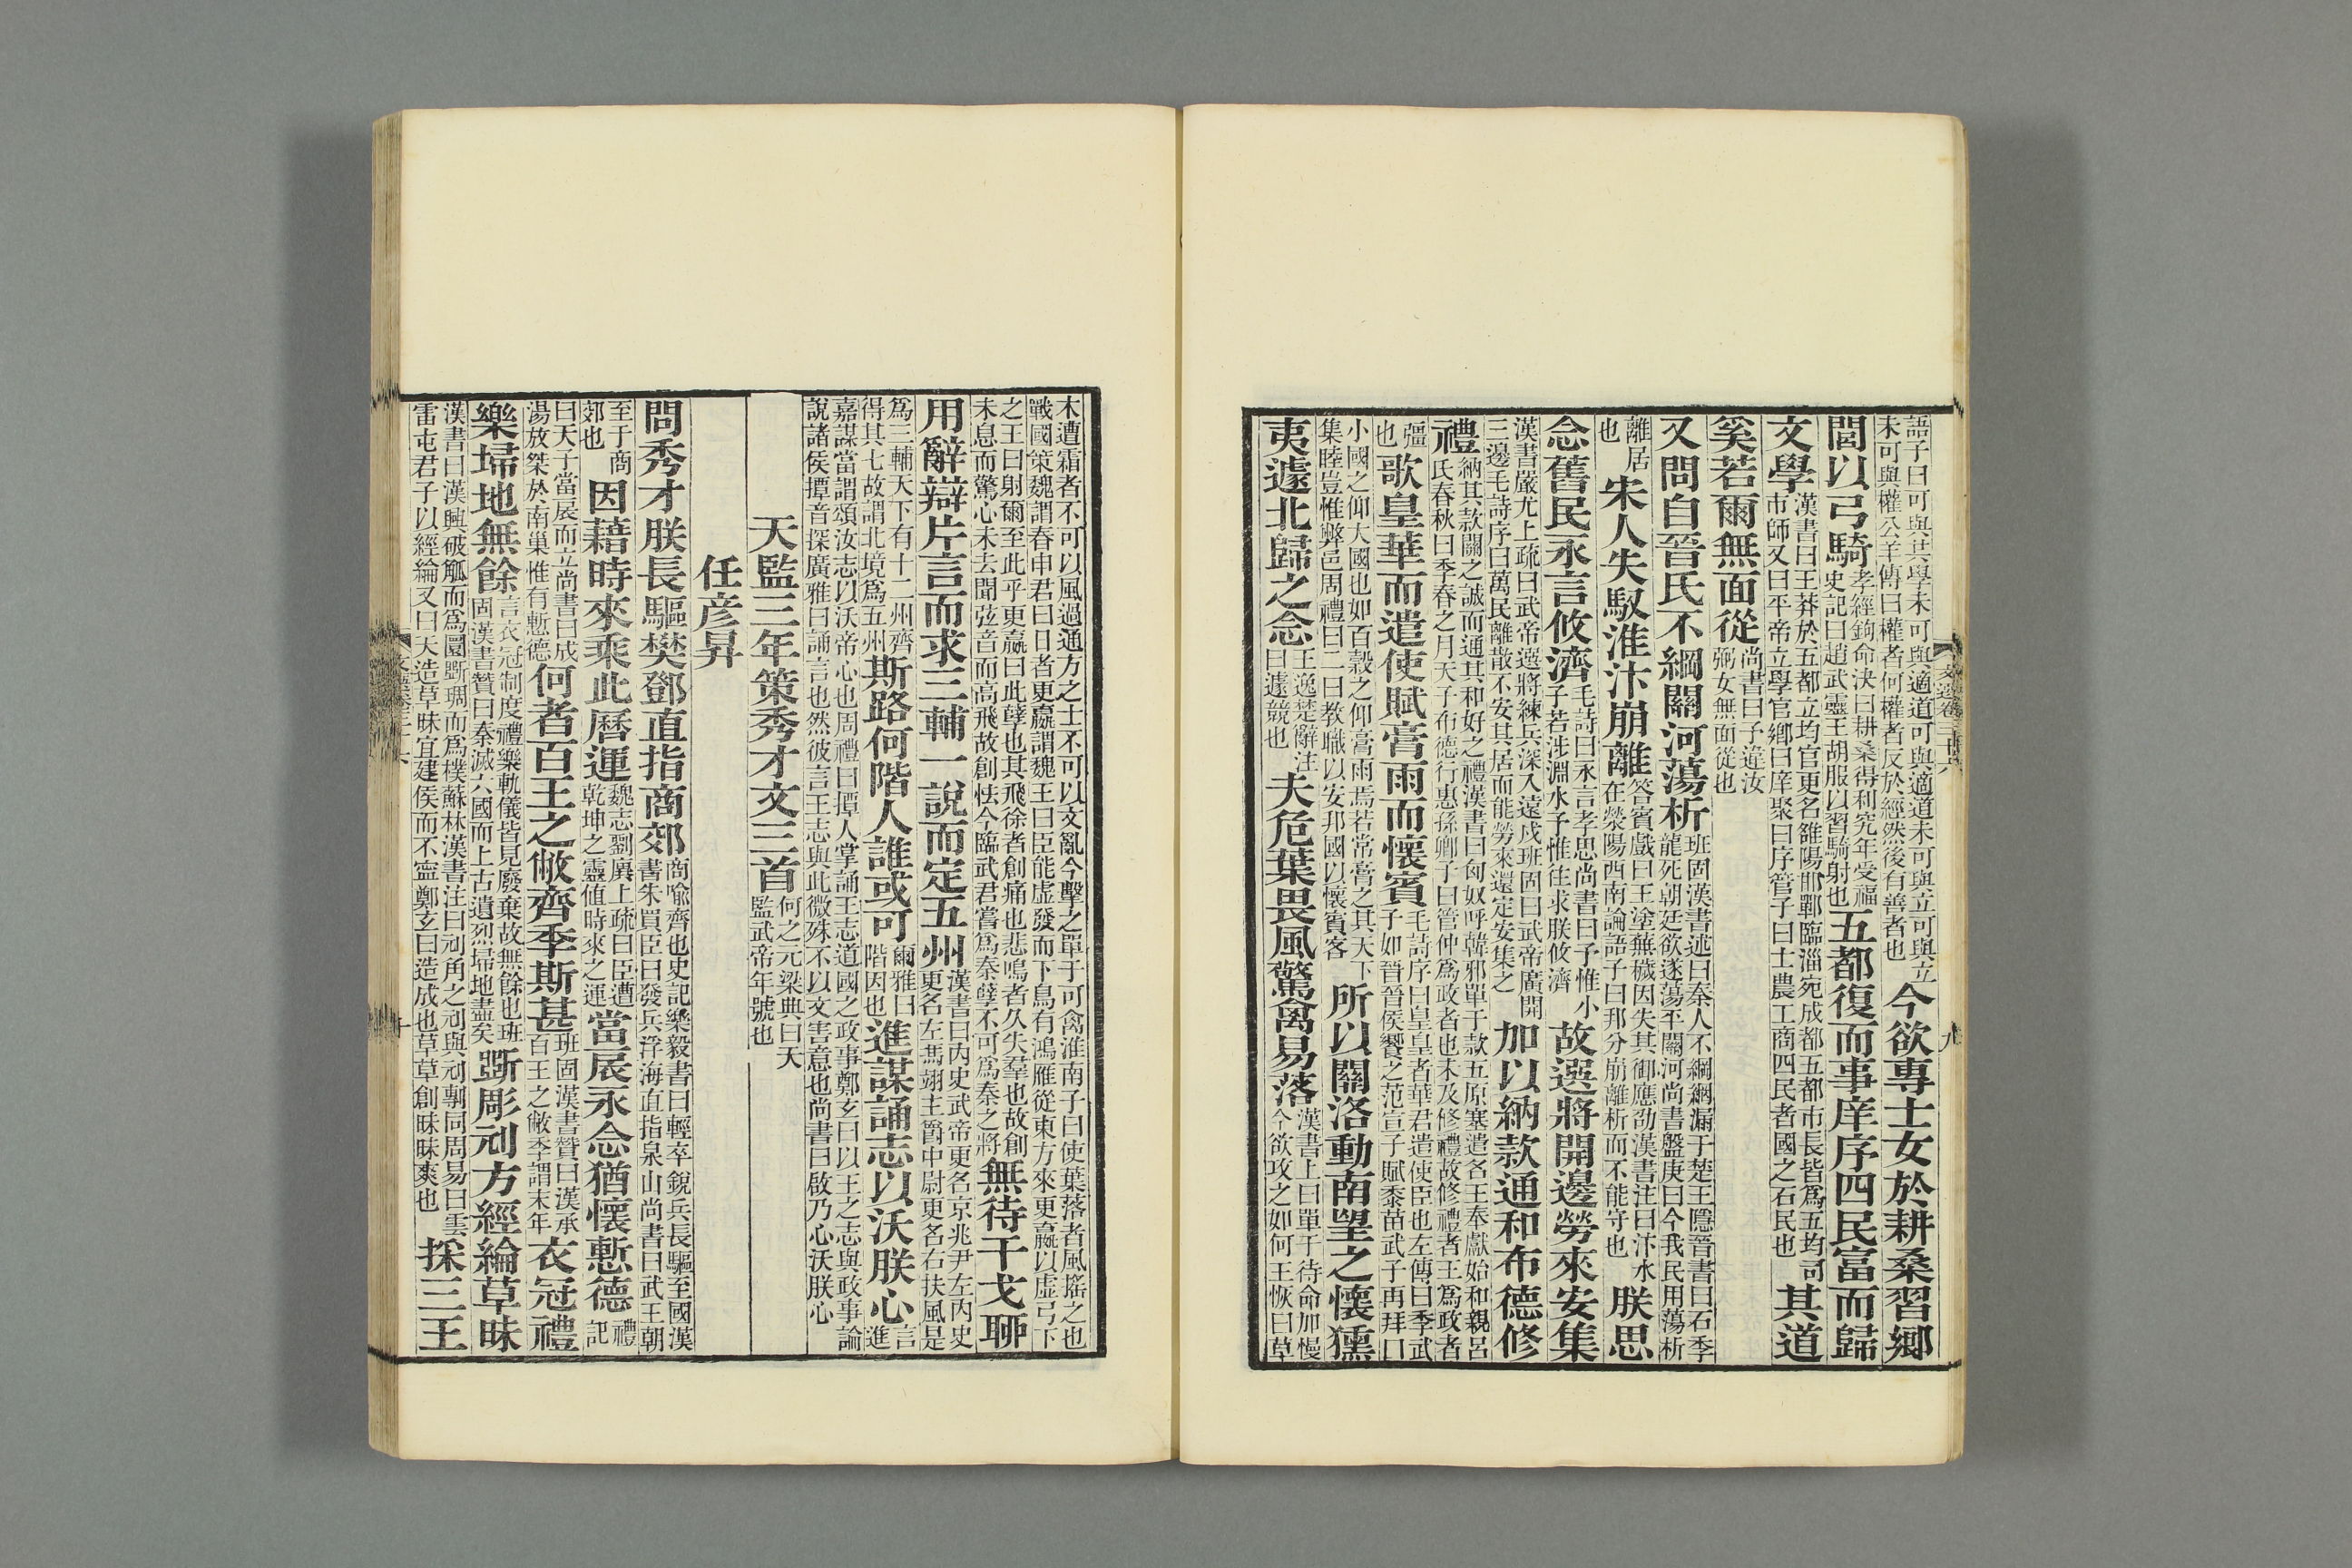 語子曰可與共學未可與適道可與適道未可與立可與立
未可與權公羊傳曰權者何權者反於經然後有善者也
今欲專士女於耕桑習鄉
閭以弓騎
孝經鉤命決曰耕桑得利究年受福
史記曰趙武靈王胡服以習騎射也
五都復而事庠序四民富而歸
文學
漢書曰王莽於五都立均官更名雒陽邯鄲臨淄宛成都五都市長皆爲五均司
市師又曰平帝立學官鄉曰庠聚曰序管子曰士農工商四民者國之石民也
其道
奚若爾無面從
尚書曰予違汝
弼女無面從也
又問自晉氏不綱關河蕩析
班固漢書述曰秦人不綱網漏于楚王隱晉書曰石季
龍死朝廷欲遂蕩平關河尚書盤庚曰今我民用蕩析
離居
也
宋人失馭淮汴崩離
答賓戲曰王塗蕪穢因失其御應劭漢書注曰汴水
在滎陽西南論語子曰邦分崩離析而不能守也
朕思
念舊民永言攸濟
毛詩曰永言孝思尚書曰予惟小
子若涉淵水予惟往求朕攸濟
故選將開邊勞來安集
漢書嚴尤上疏曰武帝選將練兵深入遠戍班固曰武帝廣開
三邊毛詩序曰萬民離散不安其居而能勞來還定安集之
加以納款通和布德修
禮
納其款關之誠而通其和好之禮漢書曰匈奴呼韓邪單于款五原塞遣名王奉獻始和親呂
氏春秋曰季春之月天子布德行惠孫卿子曰管仲爲政者也未及修禮故修禮者王爲政者
彊
也
歌皇華而遣使賦膏雨而懷賓
毛詩序曰皇皇者華君遣使臣也左傳曰季武
子如晉晉侯饗之范宣子賦黍苗武子再拜曰
小國之仰大國也如百穀之仰膏雨焉若常膏之其天下
集睦豈惟弊邑周禮曰二曰教職以安邦國以懷賓客
所以關洛動南望之懷獯
夷遽北歸之念
王逸楚辭注
曰遽競也
夫危葉畏風驚禽易落
漢書上曰單于待命加慢
今欲攻之如何王恢曰草
木遭霜者不可以風過通方之士不可以文亂今擊之單于可禽淮南子曰使葉落者風搖之也
戰國策魏謂春申君曰日者更嬴謂魏王曰臣能虛發而下鳥有鴻雁從東方來更嬴以虛弓下
之王曰射爾至此乎更嬴曰此孽也其飛徐者創痛也悲鳴者久失羣也故創
未息而驚心未去聞弦音而高飛故創怯今臨武君嘗爲秦孽不可爲秦之將
無待干戈聊
用辭辯片言而求三輔一說而定五州
漢書曰內史武帝更名京兆尹左內史
更名左馮翊主爵中尉更名右扶風是
爲三輔天下有十二州齊
得其七故謂北境爲五州
斯路何階人誰或可
爾雅曰
階因也
進謀誦志以沃朕心
言
進
嘉謀當謂頌汝志以沃帝心也周禮曰撢人掌誦王志道國之政事鄭玄曰以王之志與政事諭
說諸侯撢音探廣雅曰誦言也然彼言王志與此微殊不以文害意也尚書曰啟乃心沃朕心
天監三年策秀才文三首
何之元梁典曰天
監武帝年號也
任彥昇
問秀才朕長驅樊鄧直指商郊
商喻齊也史記樂毅書曰輕卒銳兵長驅至國漢
書朱買臣曰發兵浮海直指泉山尚書曰武王朝
至于商
郊也
因藉時來乘此曆運
魏志劉廙上疏曰臣遭
乾坤之靈值時來之運
當扆永念猶懷慙德
禮
記
曰天子當扆而立尚書曰成
湯放桀於南巢惟有慙德
何者百王之敝齊季斯甚
班固漢書贊曰漢承
百王之敝季謂末年
衣冠禮
樂埽地無餘
言衣冠制度禮樂軌儀皆見廢棄故無餘也班
固漢書贊曰秦滅六國而上古遺烈埽地盡矣
斲彫刓方經綸草昧
漢書曰漢興破觚而爲圜斲琱而爲樸蘇林漢書注曰刓角之刓與刓剸同周易曰雲
雷屯君子以經綸又曰天造草昧宜建侯而不寧鄭玄曰造成也草草創昧昧爽也
採三王